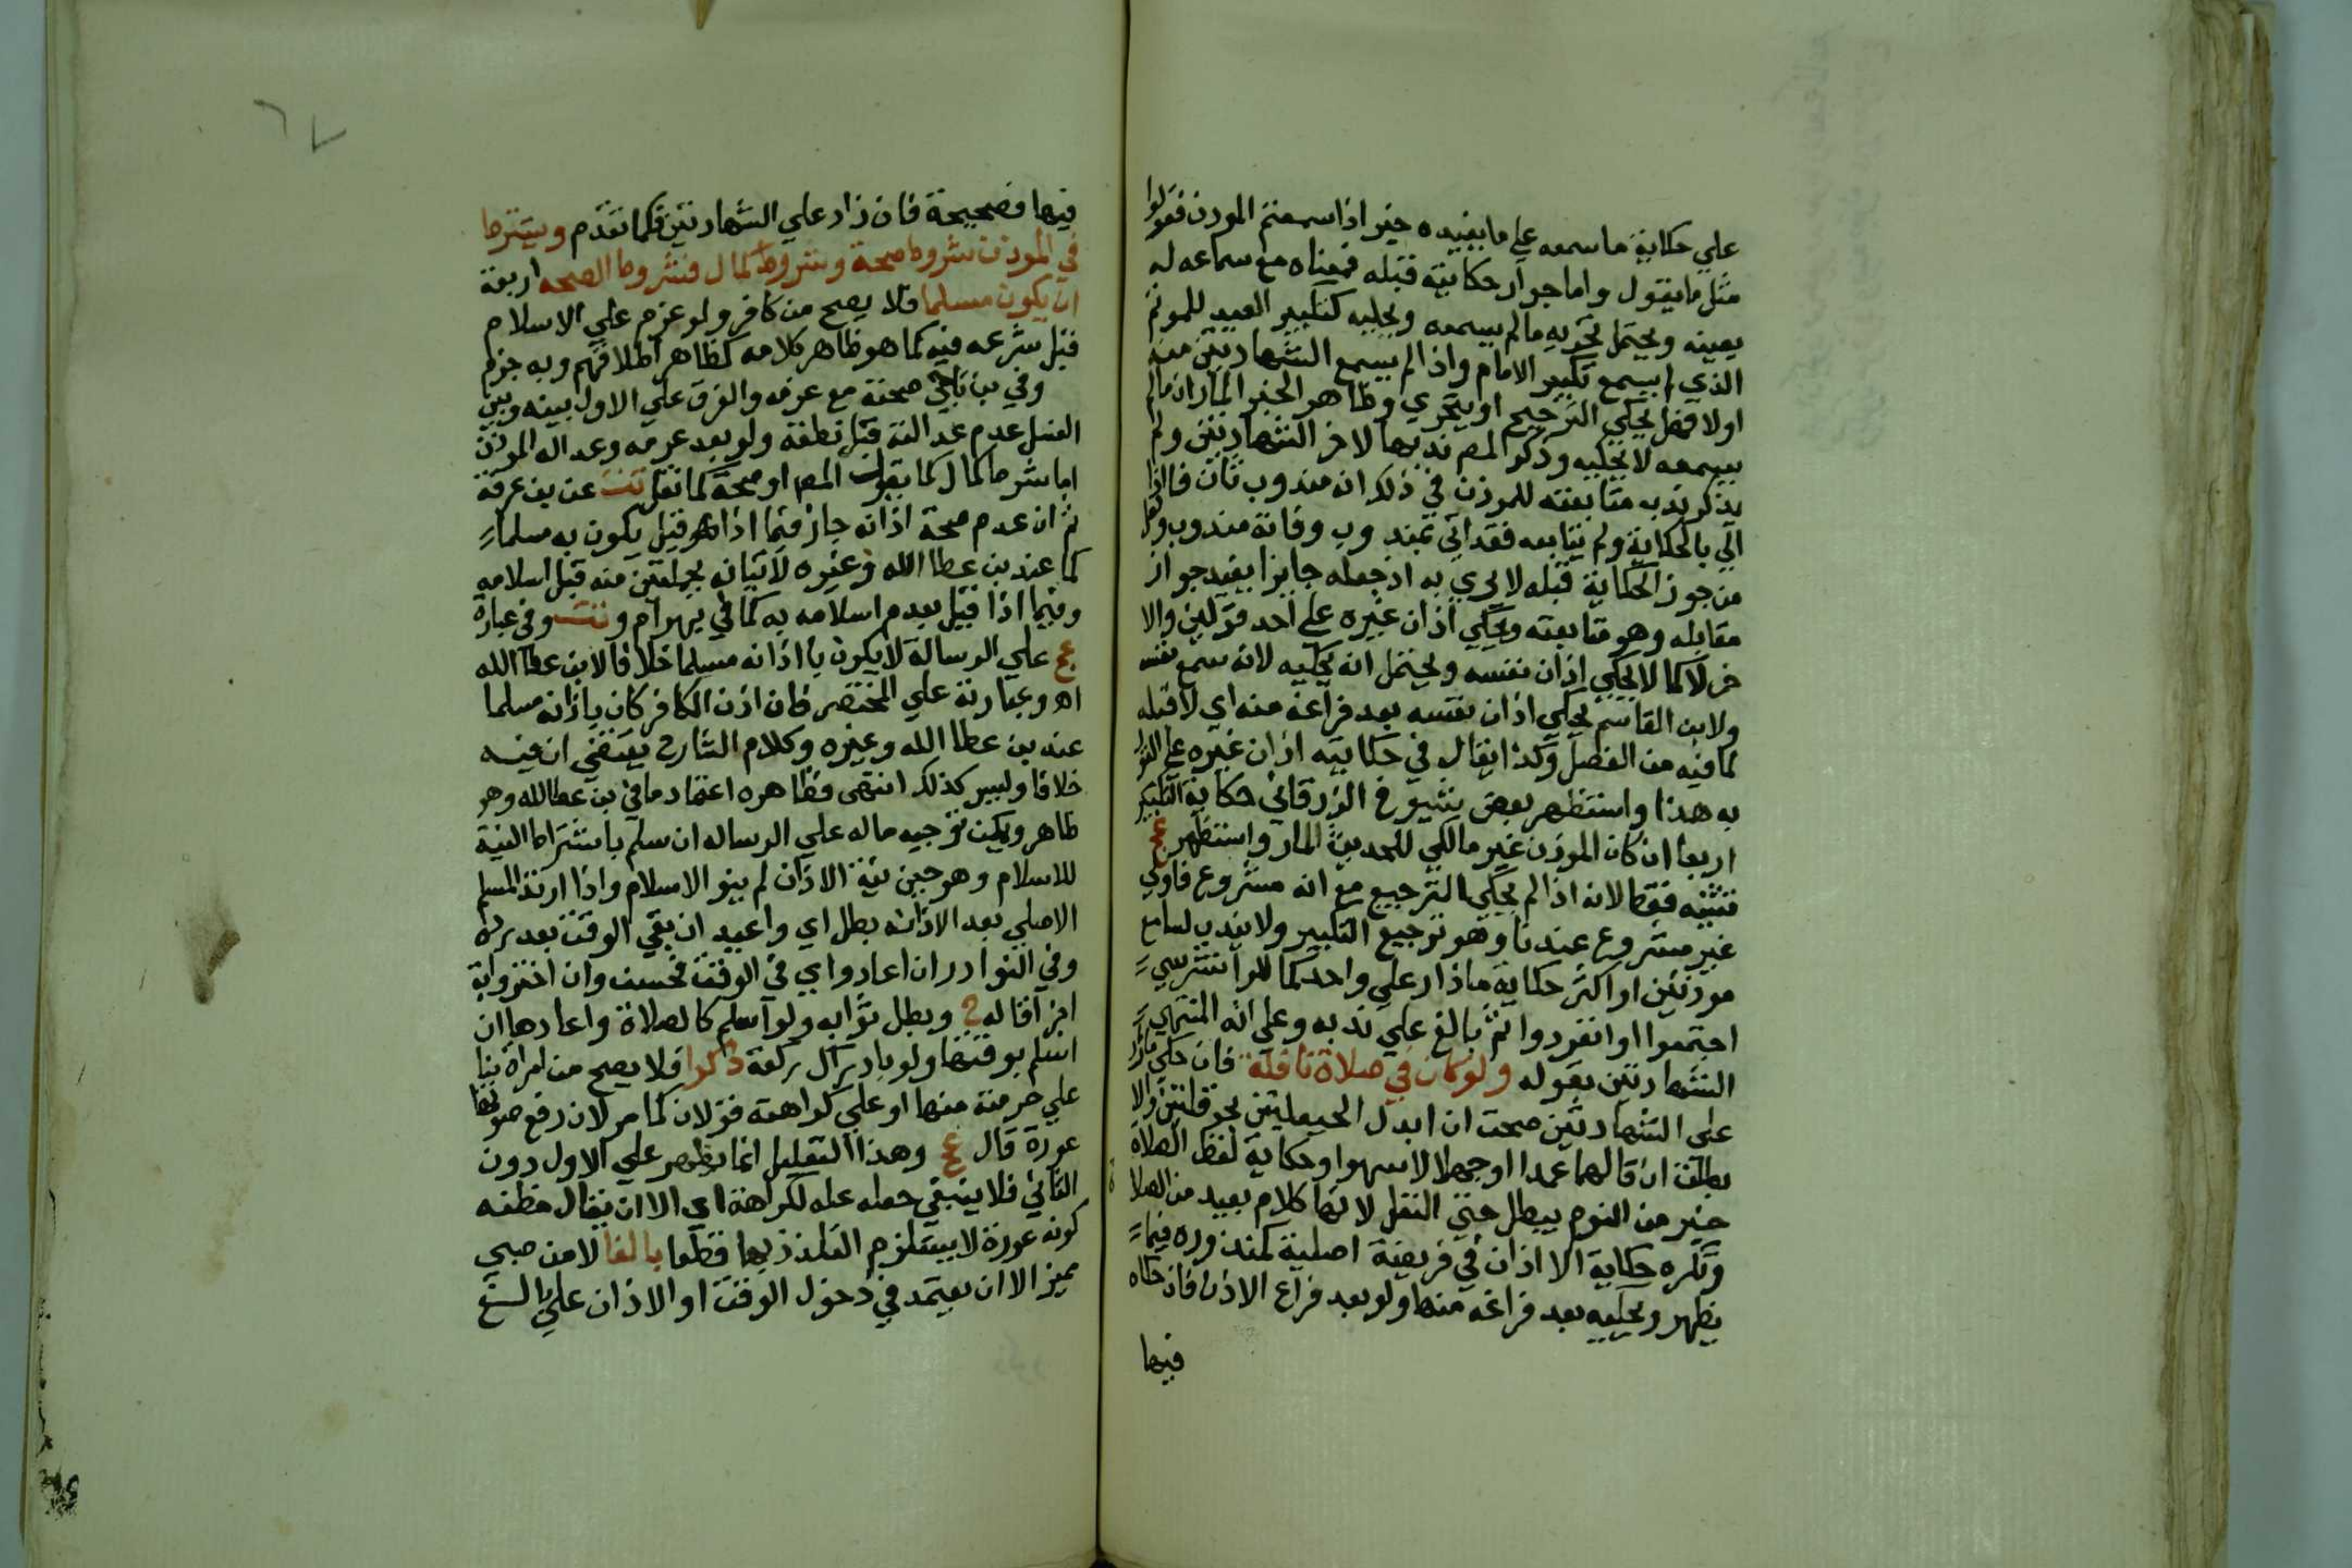 علي حكاية ما سمعه علي ما يفيده خبر اذا سمعتم الموذن فقولوا
مثل ما يقول واما جواز حكايته قبله فمعناه مع سماعه له
بعينه ويحتمل تحريه ما لم يسمعه ويحكيه كتكبير العيد للموتم
الذي لم يسمع تكبير الامام واذا لم يسمع الشهادتين منه
اولا فهل يحكي الترجيع او يتحري وظاهر الخبر المار ان ما لم
يسمعه لا يحكيه وذكر المص ندبها لاخر الشهادتين ولم
يذكر ندب متابعته للموذن في ذلك انه مندوب ثان فاذا
اتي بالحكاية ولم يتابعه فقد اتي بمندوب وفاته مندوب وقول
من جوز الحكاية قبله لا يجزي به اذ جعله جايزا يفيد جواز
مقابله وهو متابعته ويحكي اذان غيره علي احد قولين والا
فلا كما لا يحكي اذان نفسه ويحتمل انه يحكيه لانه سمع نفسه
ولابن القاسم يحكي اذان نفسه بعد فراغه منه اي لا قبله
لما فيه من الفصل وكذا يقال في حكايته اذان غيره علي القول
به هذا واستظهر بعض شيوخ الزرقاني حكاية التكبير
اربعا ان كان الموذن غير مالكي للحديث المار واستظهر عج
تثنيته فقط لانه اذا لم يحكي الترجيع مع انه مشروع فاولي
غير مشروع عندنا وهو ترجيع التكبير ولا يندب لسامع
موذنين او اكثر حكاية ما زاد علي واحد كما للوانشريسي
اجتمعوا او انفردوا ثم بالغ علي ندبه وعلي انه لمنتهي
الشهادتين بقوله ولو كان في صلاة نافلة فان حكي ما زاد
علي الشهادتين صحت ان ابدل الحيعلتين بحوقلتين والا
بطلت ان قالهما عمدا او جهلا لا سهوا وحكاية لفظ الصلاة
خير من النوم يبطل حتي النفل لانها كلام بعيد من الصلاة
وتكره حكاية الاذان في فريضة اصلية كمنذوره فيما
يظهر ويحكيه بعد فراغه منها ولو بعد فراغ الاذان فان حكاه
فيها
٦٧
فيها فصحيحة فان زاد علي الشهادتين فكما تقدم ويشترط
في الموذن شروط صحة وشروط كمال فشروط الصحه اربعة
ان يكون مسلما فلا يصح من كافر ولو عزم علي الاسلام
قبل شرعه فيه كما هو ظاهر كلامه كظاهر اطلاقهم وبه جزم
وفي بن ناجي صحته مع عزمه والفرق علي الاول بينه وبين
الغسل عدم عدالته قبل نطقه ولو بعد عزمه وعدالة الموذن
اما شرط كمال كما يقول المص او صحة كما نقل تت عن بن عرفة
ثم ان عدم صحة اذانه جاز فيما اذا هو قيل يكون به مسلما
كما عند بن عطا الله وغيره لاتيانه بجملتين منه قبل اسلامه
وفيما اذا قيل بعدم اسلامه به كما في بهرام وتت وفي عبارة
عج علي الرسالة لا يكون باذانه مسلما خلافا لابن عطا الله
اهـ وعبارته علي المختصر فان اذن الكافر كان باذانه مسلما
عند بن عطا الله وغيره وكلام الشارح يقتضي ان فيه
خلافا وليس كذلك انتهي فظاهره اعتماد ما في بن عطا الله وهو
ظاهر ويمكن توجيه ماله علي الرساله ان سلم باشتراط النية
للاسلام وهو حين نية الاذان لم ينو الاسلام واذا ارتد المسلم
الاصلي بعد الاذان بطل اي واعيد ان بقي الوقت بعد تركه
وفي النوادر ان اعادوا اي في الوقت فحسن وان اجتزوا به
اجزا قاله ح وبطل ثوابه ولو اسلم كالصلاة واعادها ان
اسلم بوقتها ولو بادراك ركعة ذكرا فلا يصح من امراة بنا
علي حرمته منها او علي كراهته قولان كما مر لان رفع صوتها
عورة قال ع وهذا التعليل انما يظهر علي الاول دون
الثاني فلا ينبغي جعله علة لكراهته اي الا ان يقال مظنه
كونه عورة لا يستلزم التلذذ بها قطعا بالغا لا من صبي
مميز الا ان يعتمد في دخول الوقت او الاذان علي بالغ